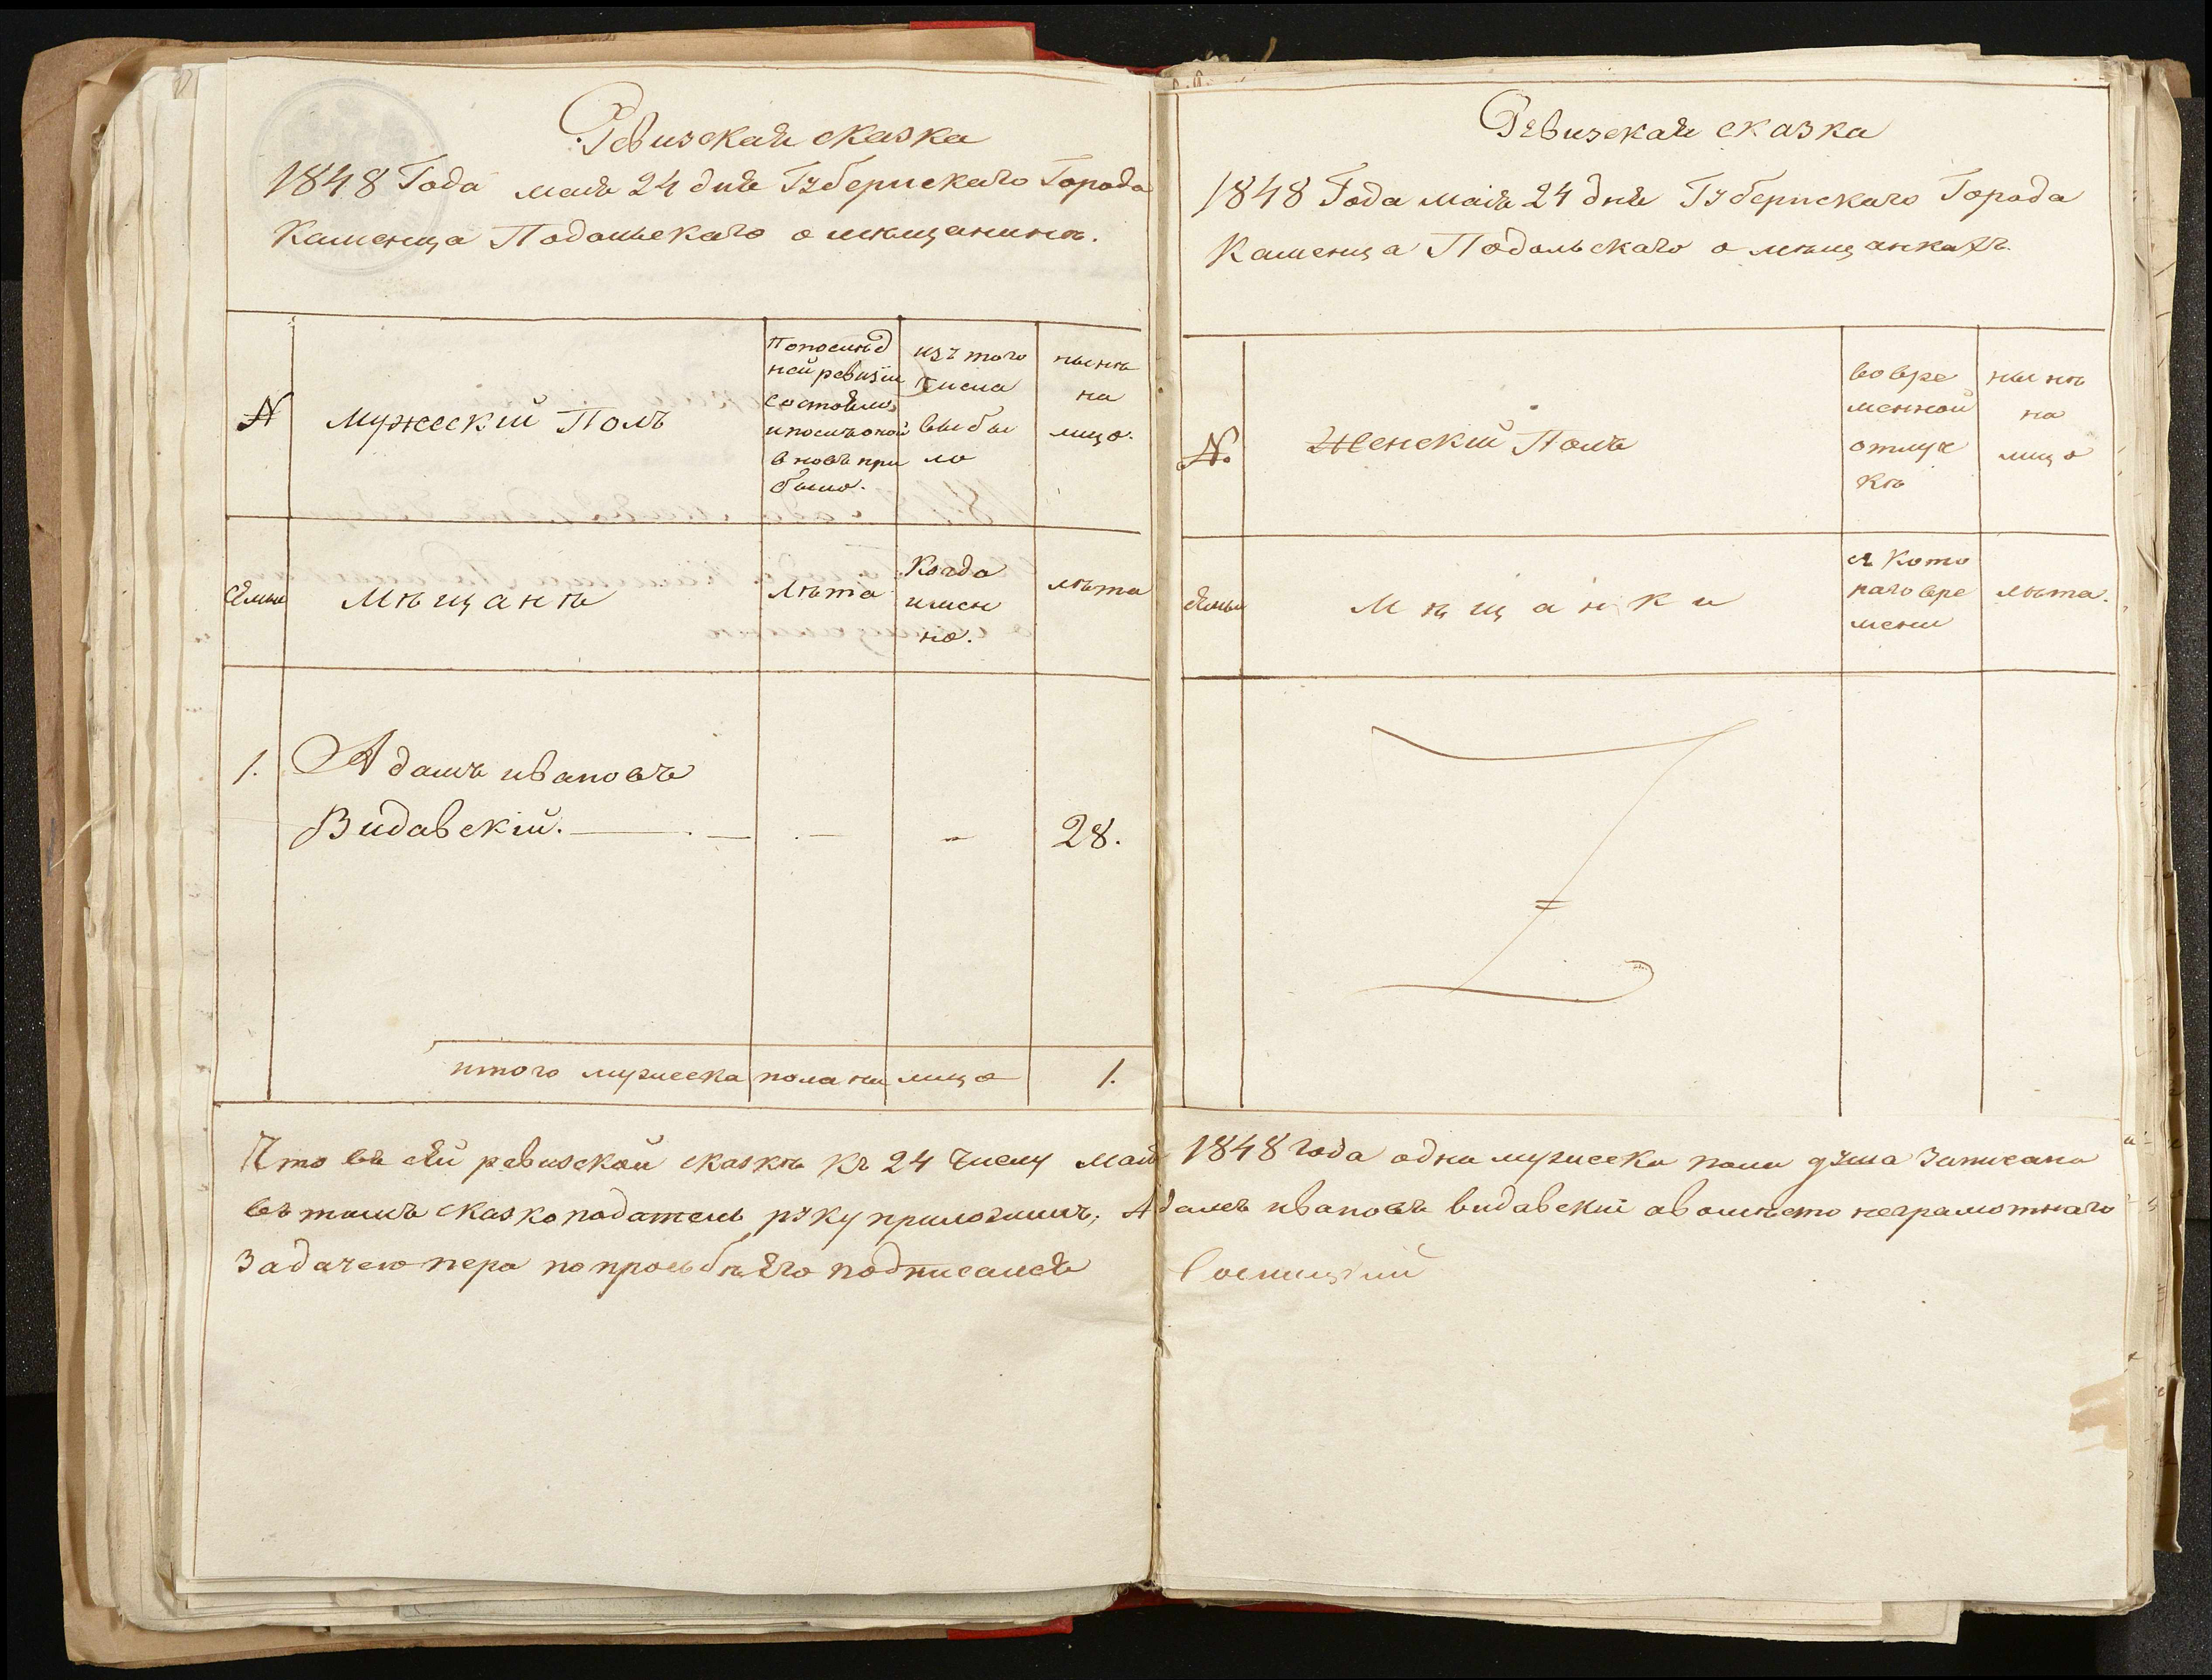 Ревизская сказка
1848 Года мая 24 дня Губернскаго Города
Каменца Подольскаго о мѣщанинѣ.
№
Мужескій Полъ
По послѣд
ней ревизіи
состояло
и послѣ оной
вновь при
было.
изъ того
числа
выбы
ло
нынѣ
на
лицо.
семьи
Мѣщанѣ
Лѣта
Когда
имен
но.
лѣта
1.
Адамъ ивановъ
Видавскій. — — — —
28.
итого мужеска пола на лицо
1.
Ревизская сказка
1848 Года маія 24 дня Губернскаго Города
Каменца Подольскаго о мѣщанкахъ.
№.
Женскій Полъ
во вре
менной
отлуч
кѣ
нынѣ
на
лицо
семьи
Мѣщанки
съ кото
раго вре
мени
лѣта.
Что въ сей ревизской сказкѣ къ 24 числу мая 1848 года одна мужеска пола душа записана
въ томъ сказкоподатель руку приложилъ, Адамъ ивановъ видавскій авомѣсто неграмотнаго
За дачею пера по прозьбѣ его подписался